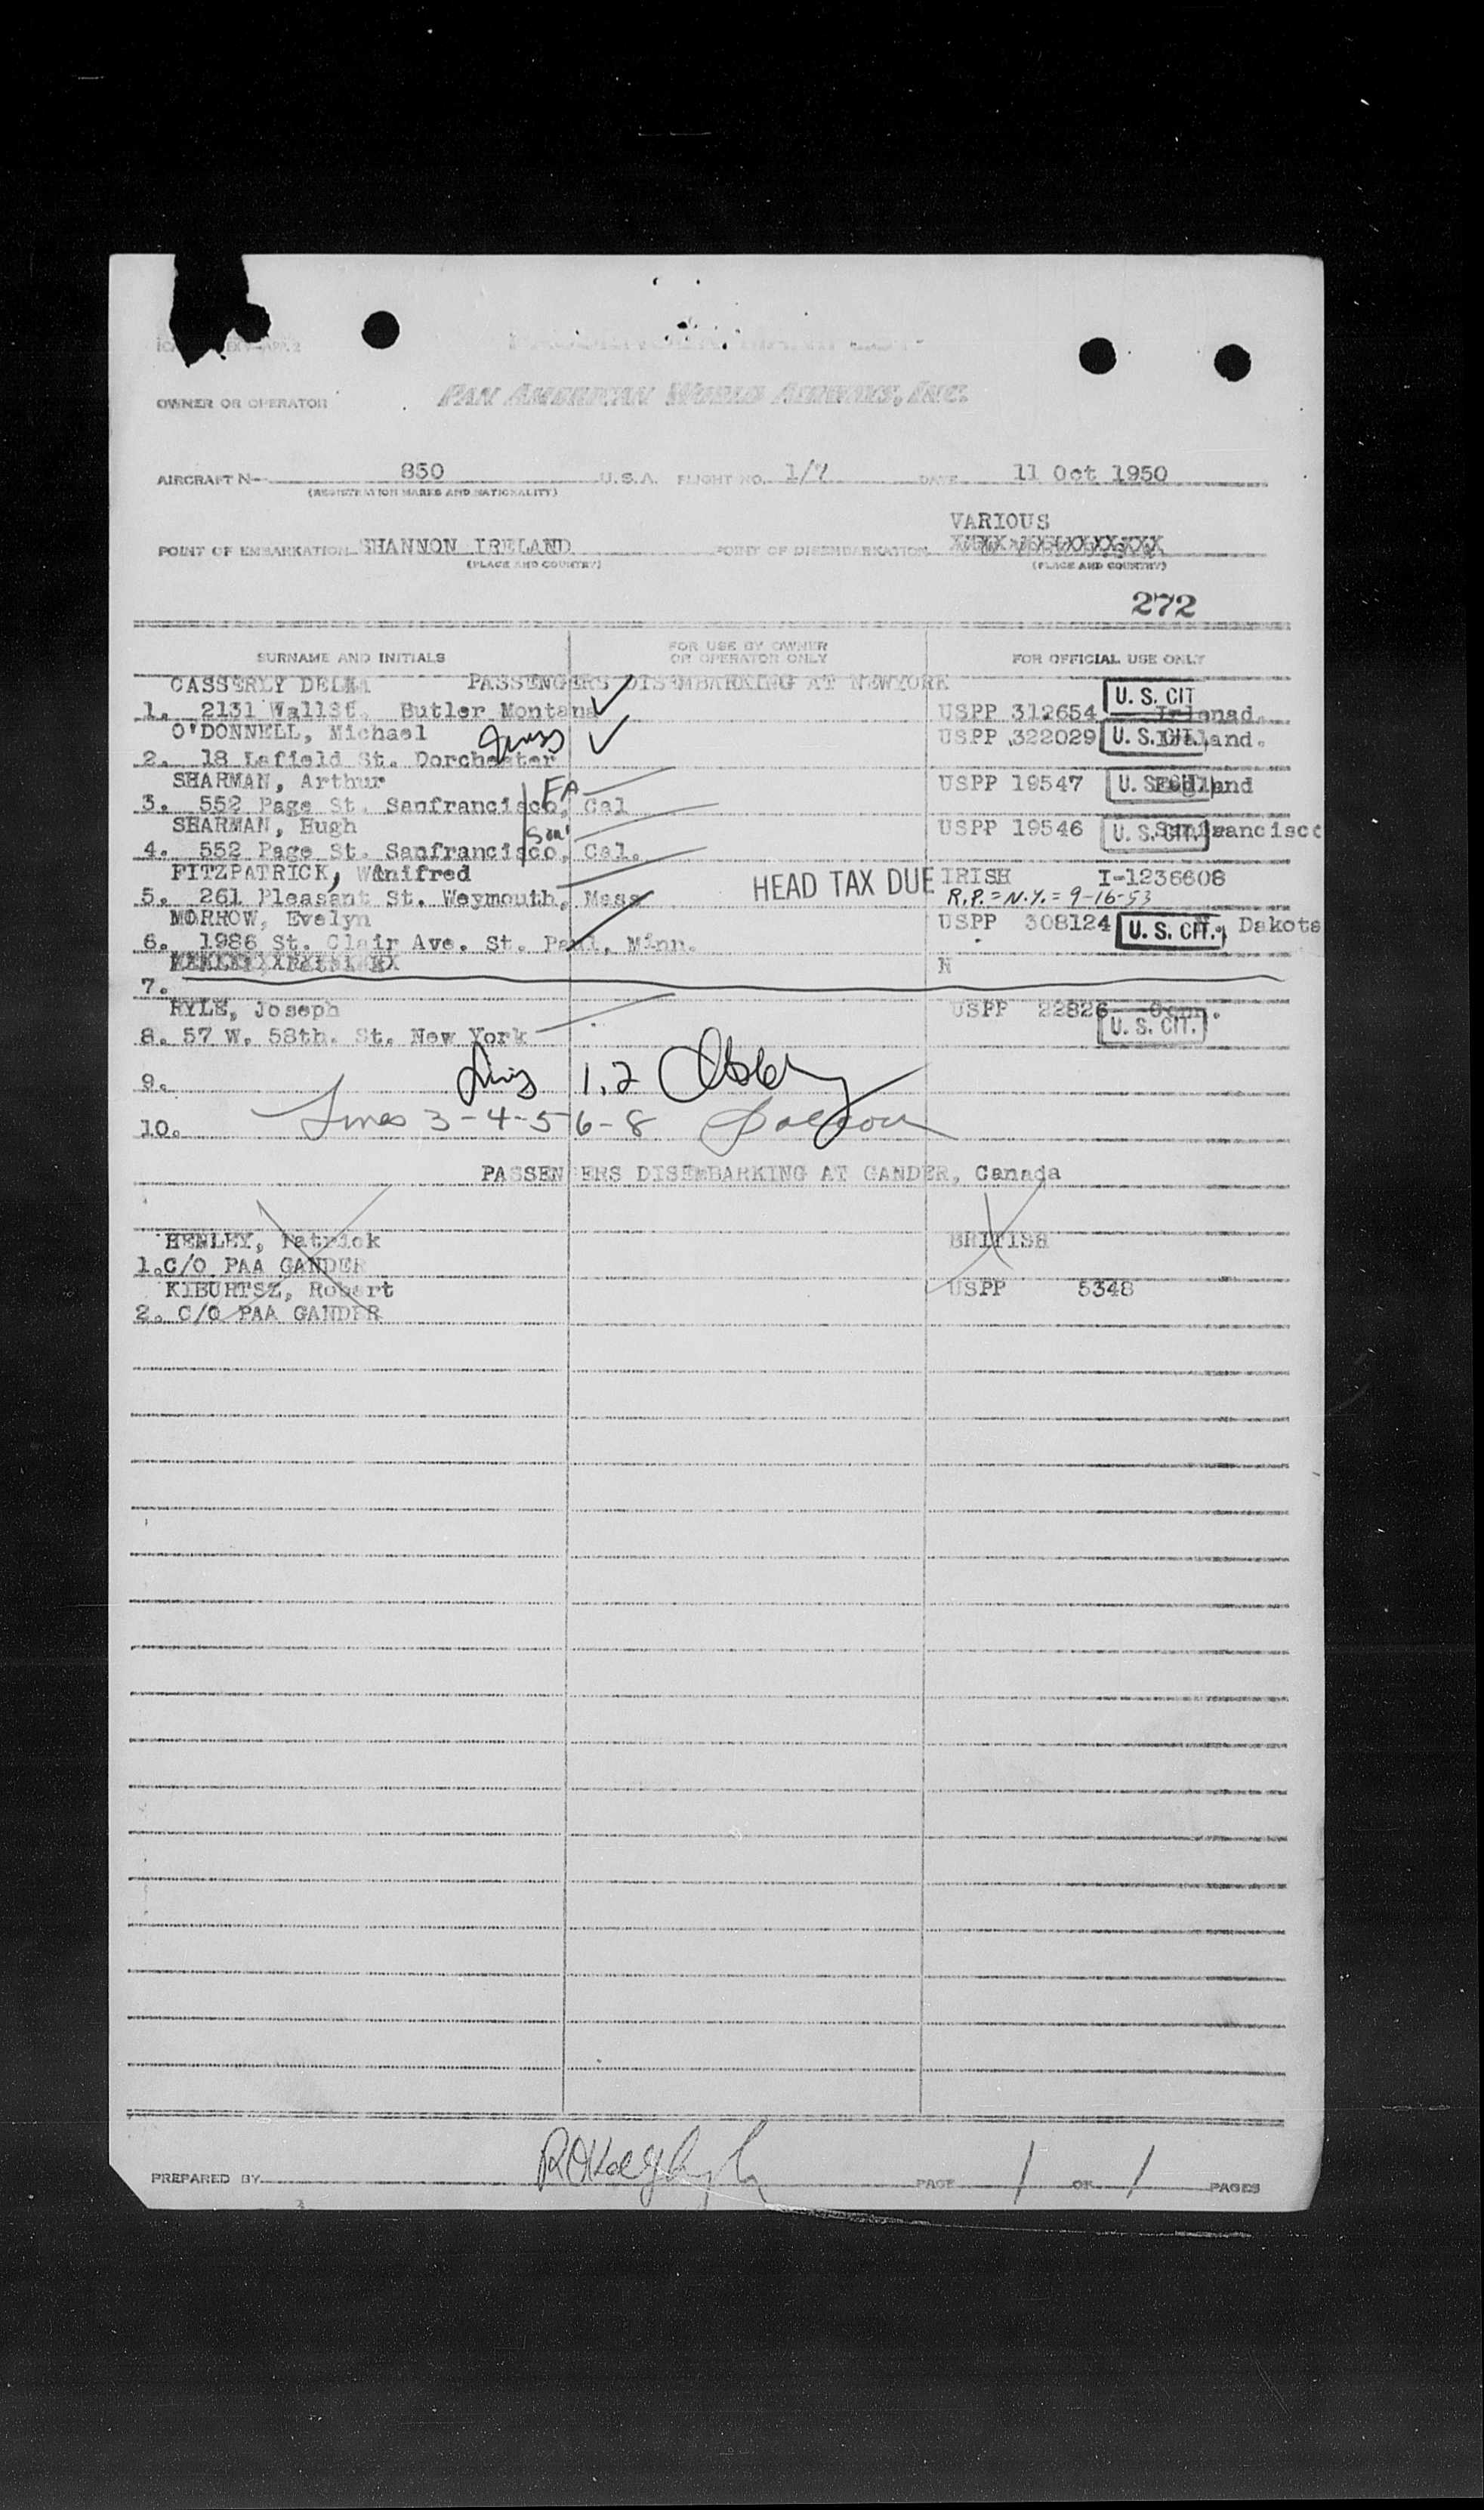 OWNER OR OPERATOR PAN AMERICAN WORLD AIRWAYS, INC.
AIRCRAFT N- 850 U.S.A. FLIGHT NO. 1/7 DATE 11 Oct 1950
(REGISTRATION MARKS AND NATIONALITY)
VARIOUS
POINT OF EMBARKATION SHANNON IRELAND POINT OF DISEMBARKATION
(PLACE AND COUNTRY) (PLACE AND COUNTRY)
272
SURNAME AND INITIALS FOR USE BY OWNER OR OPERATOR ONLY FOR OFFICIAL USE ONLY
CASSERLY DELMA PASSENGERS DISEMBARKING AT NEWYORK U. S. CIT
1. 2131 WallSt. Butler Montana USPP 312654 Irlenad.
O'DONNELL, Michael USPP 322029 U. S. CIT. Ireland.
2. 18 Lafield St. Dorchester
SHARMAN, Arthur USPP 19547 U. S. CIT. England
3. 552 Page St. Sanfrancisco, Cal
SHARMAN, Hugh USPP 19546 U. S. CIT. Sanfrancisco
4. 552 Page St. Sanfrancisco, Cal.
FITZPATRICK, Winifred HEAD TAX DUE IRISH I-1236608
5. 261 Pleasant St. Weymouth, Mass R.P. = N.Y. = 9-16-53
MORROW, Evelyn USPP 308124 U. S. CIT. N. Dakota
6. 1986 St. Clair Ave. St. Paul, Minn.
N
7.
RYLE, Joseph USPP 22826 Conn.
8. 57 W. 58th. St. New York U. S. CIT.
9. Lines 1.2
10. Lines 3-4-5-6-8
PASSENGERS DISEMBARKING AT GANDER, Canada
HENLEY, Patrick BRITISH
1. C/O PAA GANDER
KIBURTSZ, Robert USPP 5348
2. C/O PAA GANDER
PREPARED BY PAGE 1 OF 1 PAGES